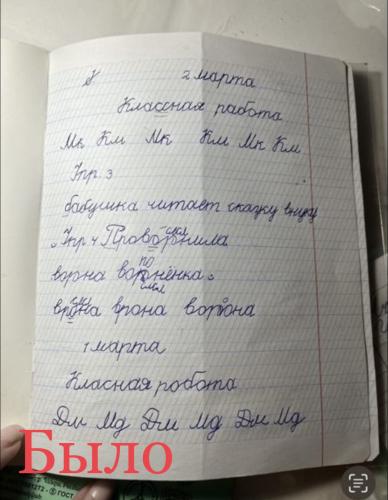 2 марта
Классная работа
Мк Км Мк Км Мк Км
Упр. 3
бабушка читает сказку внуку
Упр 4 Проворонила
ворна воронёнка.
врона врона ворона
1 марта
Класная робота
Дм Мд Дм Мд Дм Мд
Было